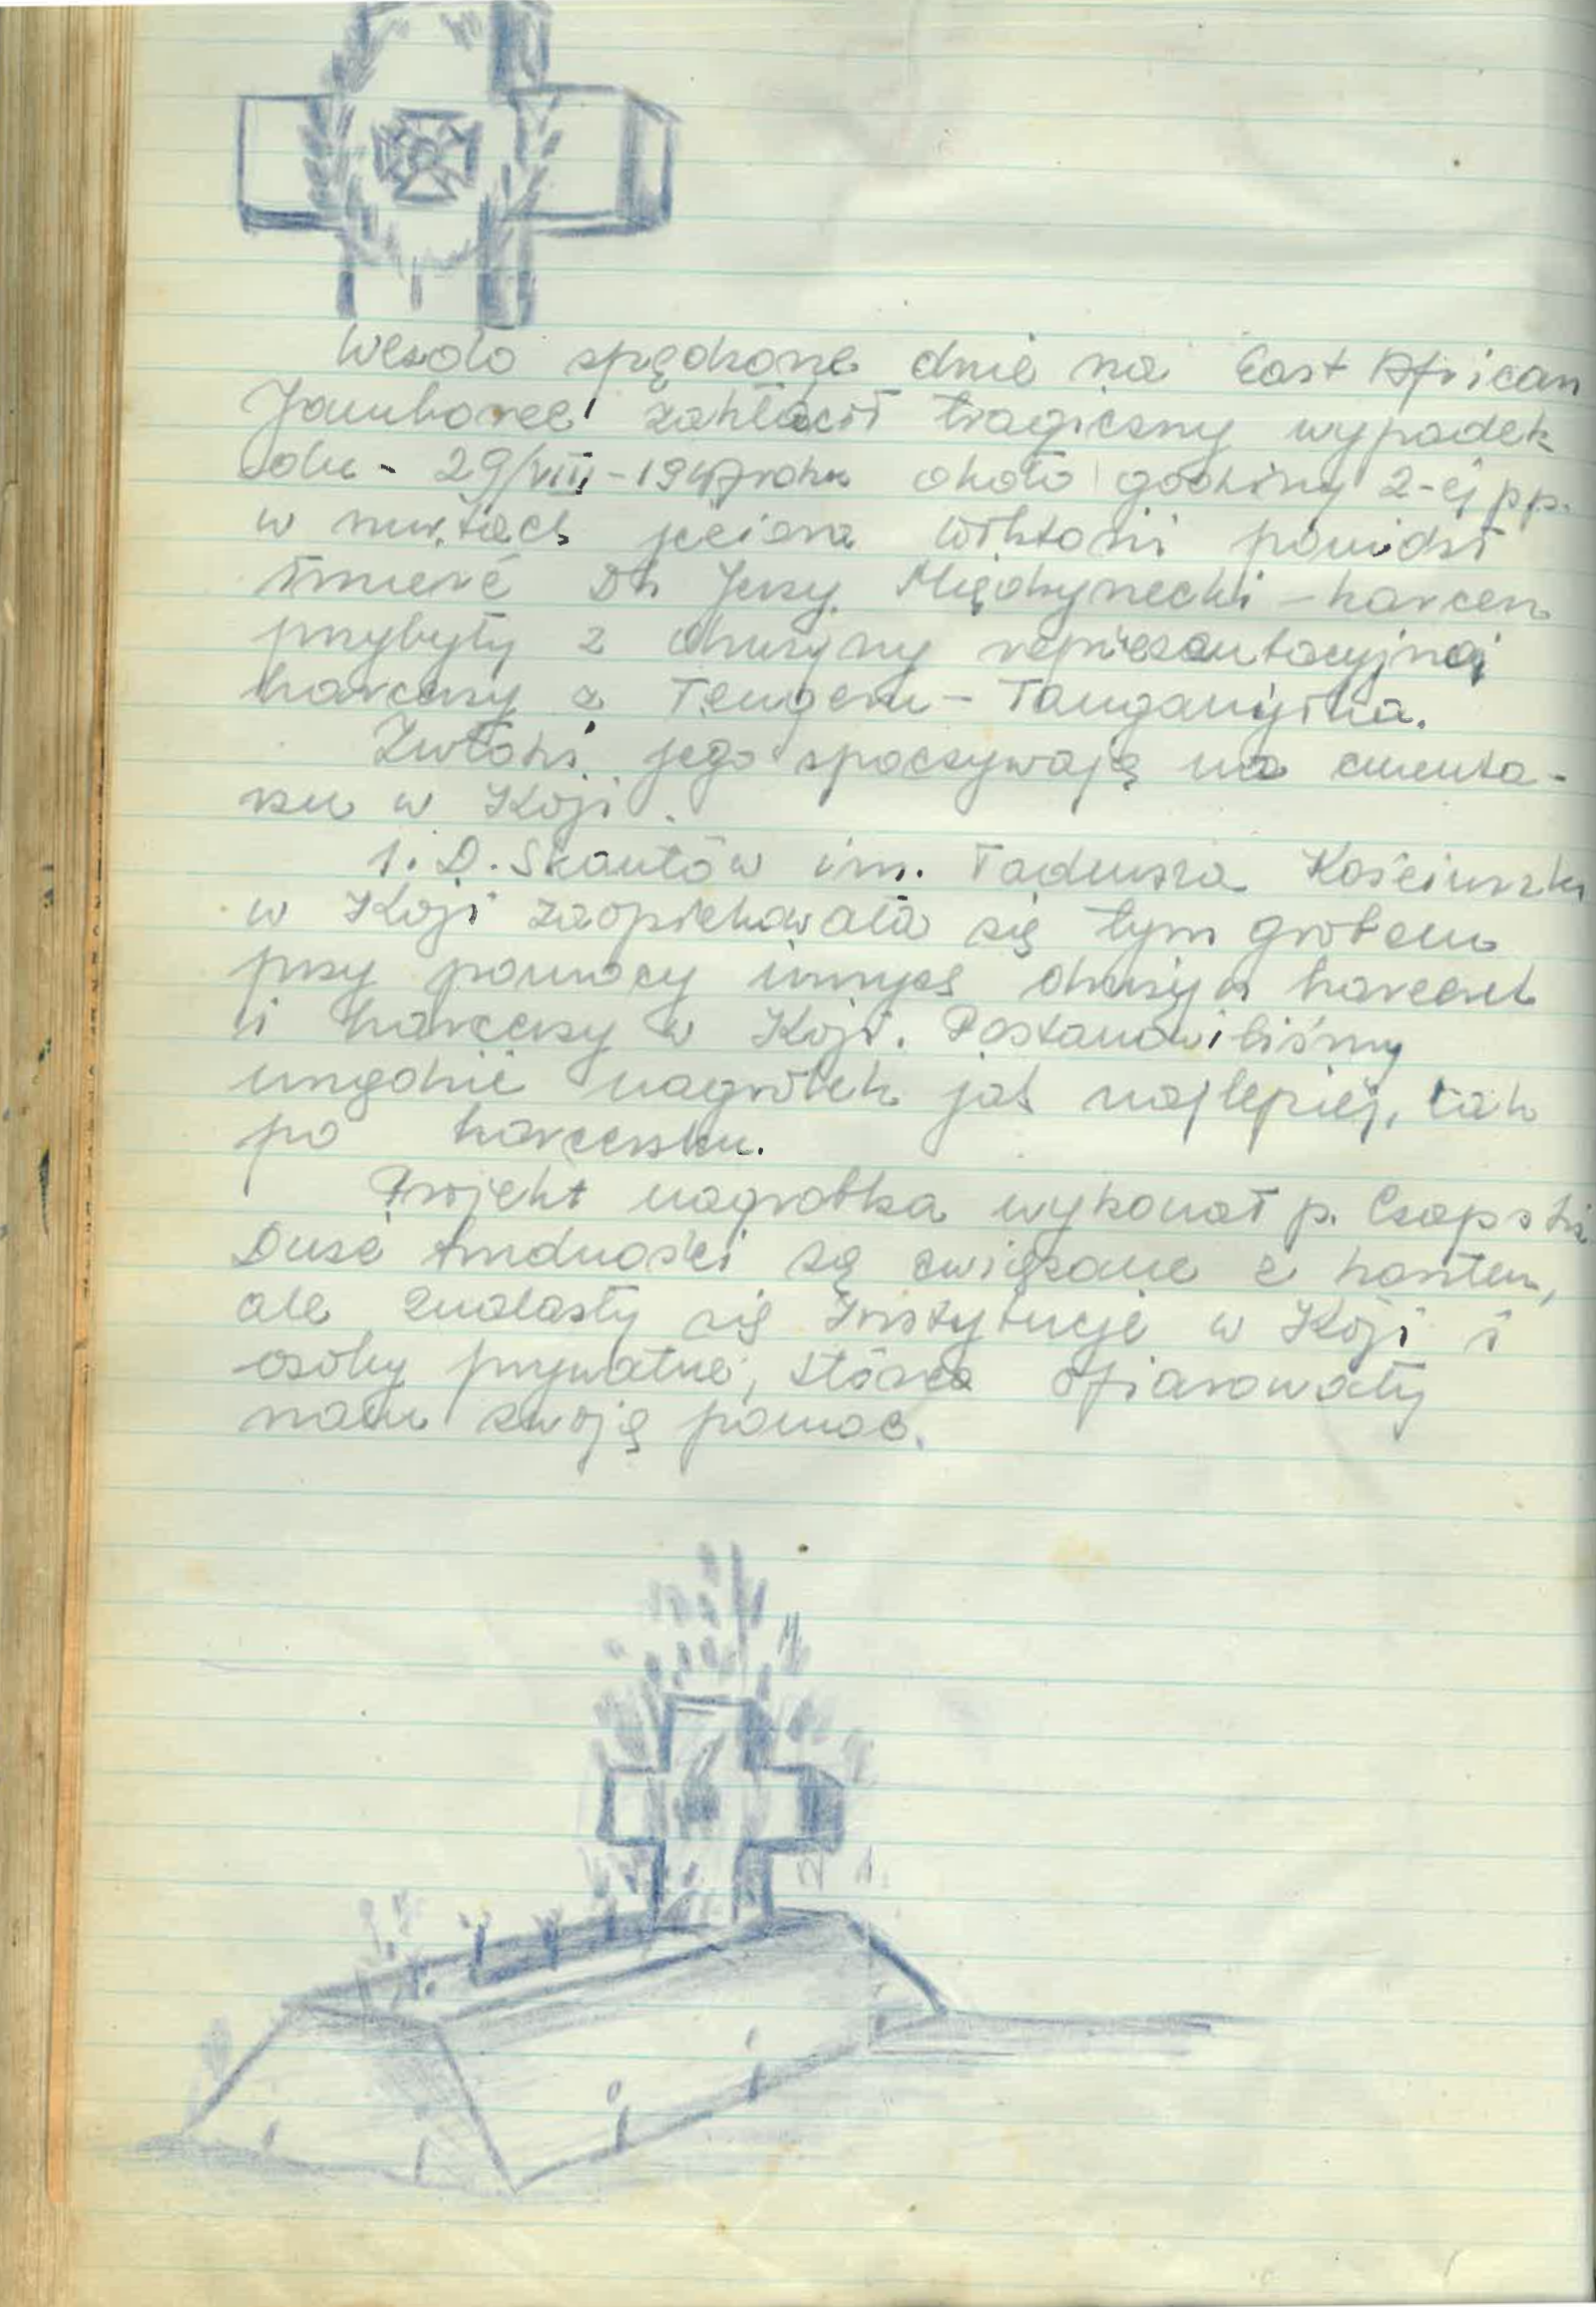 Wesoło spędzone dnie na East African
Jamboree zakłócił tragiczny wypadek
dn - 29/VIII - 1947 roku około godziny 2-ej pp.
w nurtach jeziora Wiktorii poniósł
śmierć Dh Jerzy Międzyrzecki - harcerz
przybyły z drużyny reprezentacyjnej
harcerzy z Tengeru - Tanganyika.
Zwłoki jego spoczywają na cmenta-
rzu w Koji.
1. D. Skautów im. Tadeusza Kościuszki
w Koji zaopiekowała się tym grobem
przy pomocy innych drużyn harcerek
i harcerzy w Koji. Postanowiliśmy
urządzić nagrobek jak najlepiej, tak
po harcersku.
Projekt nagrobka wykonał p. Czapski
Duże trudności są związane z kosztem,
ale znalazły się Instytucje w Koji i
osoby prywatne, które ofiarowały
nam swoją pomoc.